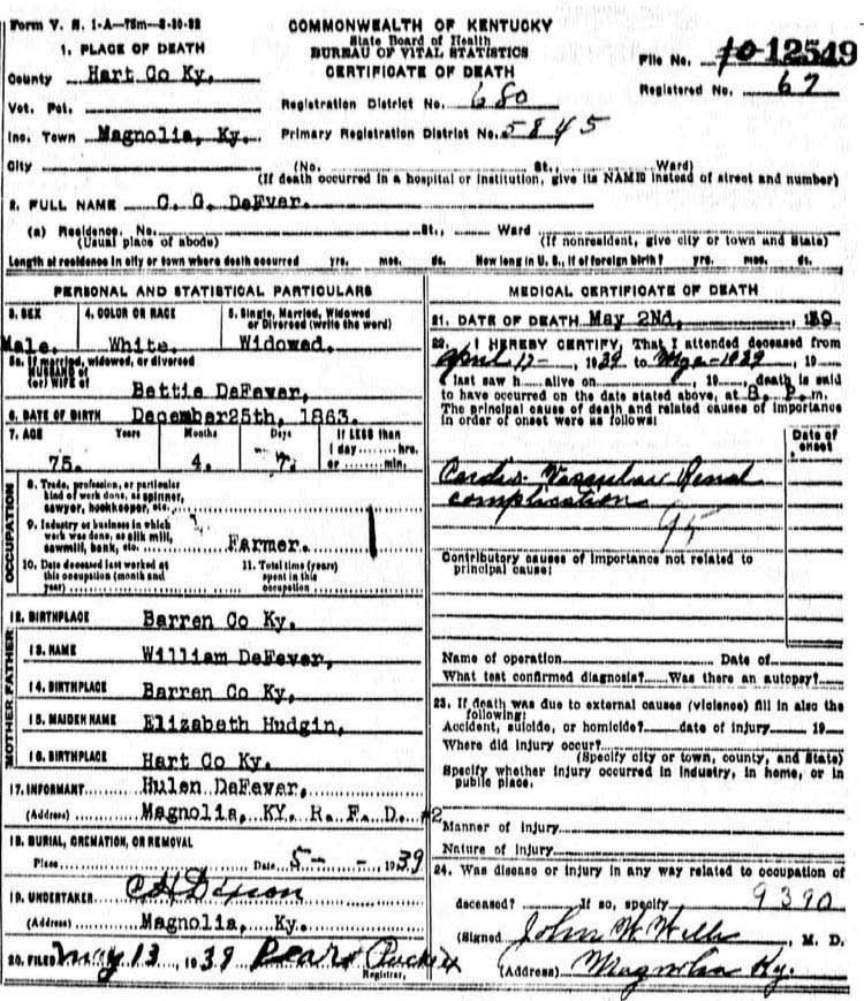 Form V. S. 1-A—75m—8-30-32
COMMONWEALTH OF KENTUCKY
State Board of Health
BUREAU OF VITAL STATISTICS
CERTIFICATE OF DEATH
File No. 12549
Registered No. 67
1. PLACE OF DEATH
County Hart Co Ky.
Vot. Pct.
Registration District No. 680
Inc. Town Magnolia, Ky. Primary Registration District No. 5845
City (No. St., Ward)
(If death occurred in a hospital or institution, give its NAME instead of street and number)
2. FULL NAME C. G. DeFever.
(a) Residence. No. St., Ward
(Usual place of abode) (If nonresident, give city or town and State)
Length of residence in city or town where death occurred yrs. mos. ds. How long in U. S., if of foreign birth? yrs. mos. ds.
PERSONAL AND STATISTICAL PARTICULARS
3. SEX 4. COLOR OR RACE 5. Single, Married, Widowed
or Divorced (write the word)
Male. White. Widowed.
5a. If married, widowed, or divorced
HUSBAND of
(or) WIFE of
Bettie DeFever,
6. DATE OF BIRTH December 25th, 1863.
7. AGE Years Months Days If LESS than
1 day hrs.
or min.
75. 4. 7.
OCCUPATION
8. Trade, profession, or particular
kind of work done, as spinner,
sawyer, bookkeeper, etc.
9. Industry or business in which
work was done, as silk mill,
sawmill, bank, etc. Farmer.
10. Date deceased last worked at
this occupation (month and
year)
11. Total time (years)
spent in this
occupation
12. BIRTHPLACE Barren Co Ky.
FATHER
13. NAME William DeFever,
14. BIRTHPLACE Barren Co Ky,
MOTHER
15. MAIDEN NAME Elizabeth Hudgin,
16. BIRTHPLACE Hart Co Ky.
17. INFORMANT Hulen DeFever,
(Address) Magnolia, KY. R. F. D. #2
18. BURIAL, CREMATION, OR REMOVAL
Place Date 5- - 1939
19. UNDERTAKER
(Address) Magnolia, Ky.
20. FILED May 13, 1939
Registrar.
MEDICAL CERTIFICATE OF DEATH
21. DATE OF DEATH May 2Nd, 139
22. I HEREBY CERTIFY, That I attended deceased from
April 17-, 1939 to 1939, 19
I last saw h alive on , 19 , death is said
to have occurred on the date stated above, at 8. P.m.
The principal cause of death and related causes of importance
in order of onset were as follows:
Date of
onset
Cardio Vascular Renal
complications
95
Contributory causes of importance not related to
principal cause:
Name of operation Date of
What test confirmed diagnosis? Was there an autopsy?
23. If death was due to external causes (violence) fill in also the
following:
Accident, suicide, or homicide? date of injury 19
Where did injury occur?
(Specify city or town, county, and State)
Specify whether injury occurred in industry, in home, or in
public place.
Manner of injury
Nature of injury
24. Was disease or injury in any way related to occupation of
deceased? If so, specify 9390
(Signed John W., M. D.
(Address) Magnolia Ky.